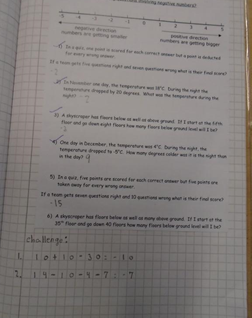 involving negative numbers?
-5 -4 -3 -2 -1 0 1 2 3 4 5
negative direction positive direction
numbers are getting smaller numbers are getting bigger
1) In a quiz, one point is scored for each correct answer but a point is deducted
for every wrong answer.
If a team gets five questions right and seven questions wrong what is their final score?
2) In November one day, the temperature was 18°C. During the night the
temperature dropped by 20 degrees. What was the temperature during the
night?
3) A skyscraper has floors below as well as above ground. If I start at the fifth
floor and go down eight floors how many floors below ground level will I be?
4) One day in December, the temperature was 4°C. During the night, the
temperature dropped to -5°C. How many degrees colder was it in the night than
in the day? 9
5) In a quiz, five points are scored for each correct answer but five points are
taken away for every wrong answer.
If a team gets seven questions right and 10 questions wrong what is their final score?
-15
6) A skyscraper has floors below as well as many above ground. If I start at the
35th floor and go down 40 floors how many floors below ground level will I be?
challenge:
1. 10 + 10 - 30 = -10
2. 14 - 10 - 4 - 7 = -7